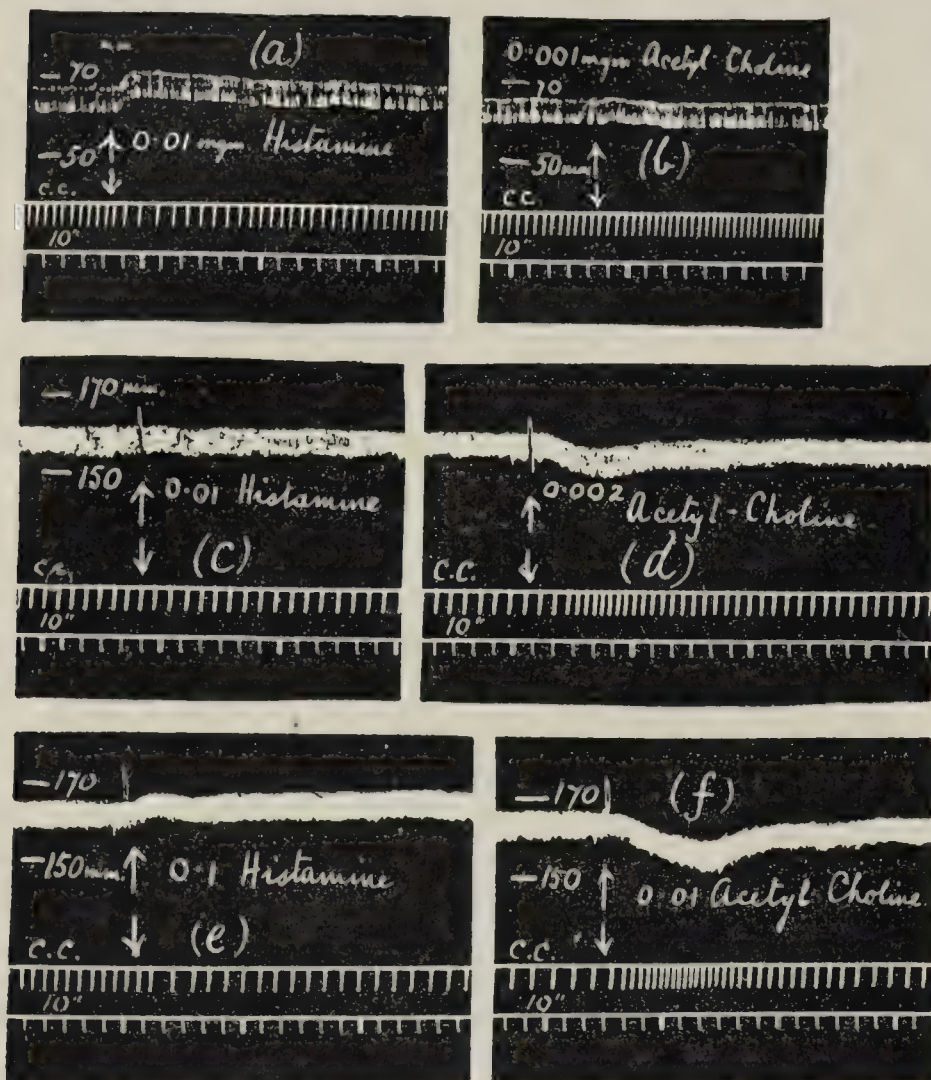 (a)
– 70
0.01 mgm Histamine
– 50
c.c.
10"
0.001 mgm Acetyl Choline
– 70
– 50 mm
(b)
c.c.
10"
– 170 mm.
– 150
0.01 Histamine
(c)
c.c.
10"
0.002 Acetyl-Choline
(d)
C.C.
10"
– 170
– 150 mm.
0.1 Histamine
(e)
c.c.
10"
– 170
(f)
– 150
0.01 Acetyl Choline.
c.c.
10"